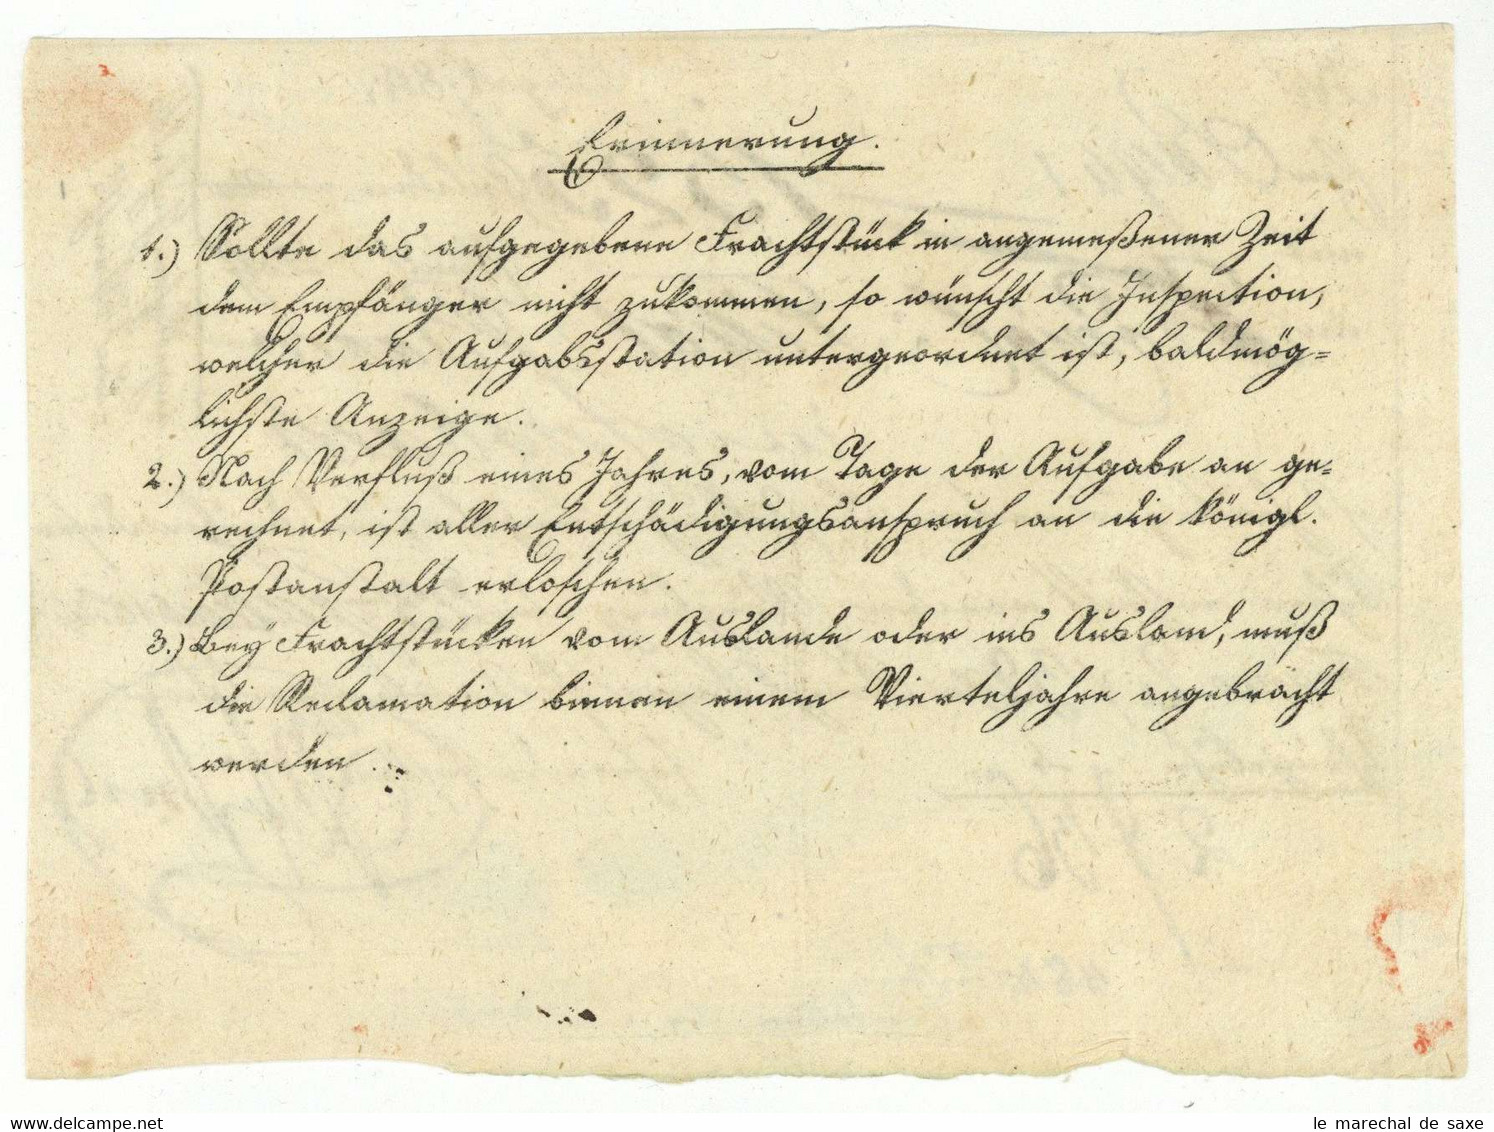 Erinnerung.
1.) Sollte das aufgegebene Frachtstück in angemeßener Zeit
dem Empfänger nicht zukommen, so wünscht die Inspection,
welcher die Aufgabsstation untergeordnet ist, baldmög=
lichste Anzeige.
2.) Nach Verfluß eines Jahres, vom Tage der Aufgabe an ge=
rechnet, ist aller Entschädigungsanspruch an die königl.
Postanstalt erloschen.
3.) Bey Frachtstücken vom Auslande oder ins Ausland, muß
die Reclamation binnen einem Vierteljahre angebracht
werden.
www.delcampe.net
le marechal de saxe